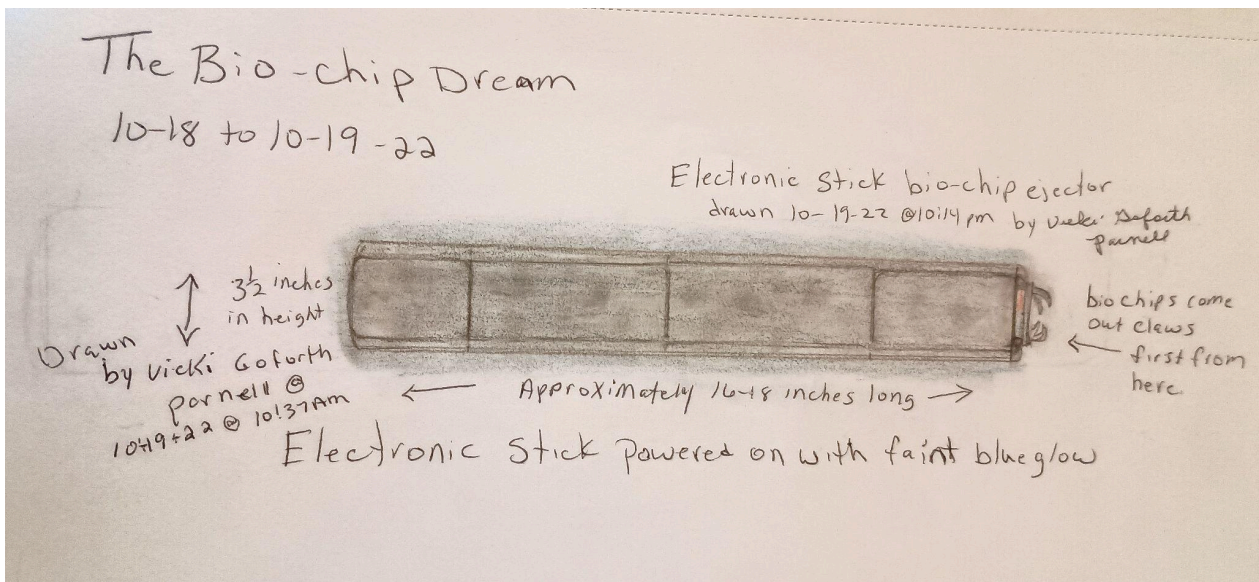 The Bio-chip Dream
10-18 to 10-19-22
Electronic Stick bio-chip ejector
drawn 10-19-22 @10:14 pm by Vicki Goforth
parnell
3½ inches
in height
Drawn
by Vicki Goforth
parnell @
10-19-22 @ 10:37Am
bio chips come
out claws
first from
here.
Approximately 16-18 inches long
Electronic Stick powered on with faint blue glow